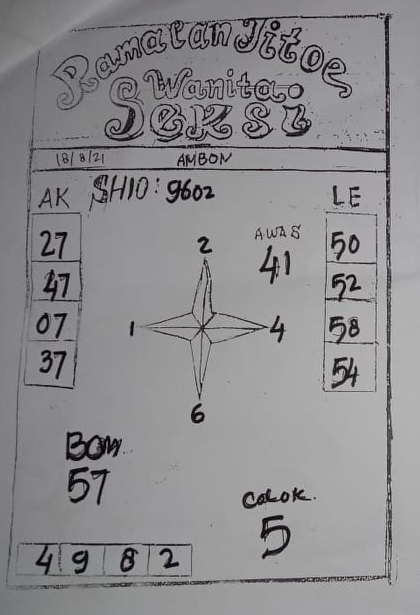 Ramalan Jitoe
Wanita
Seksi
18/8/21 AMBON
AK SHIO: 9602 LE
27
47
07
37
2
1 4
6
AWAS
41
50
52
58
54
BOM
57
COLOK.
5
4 9 8 2